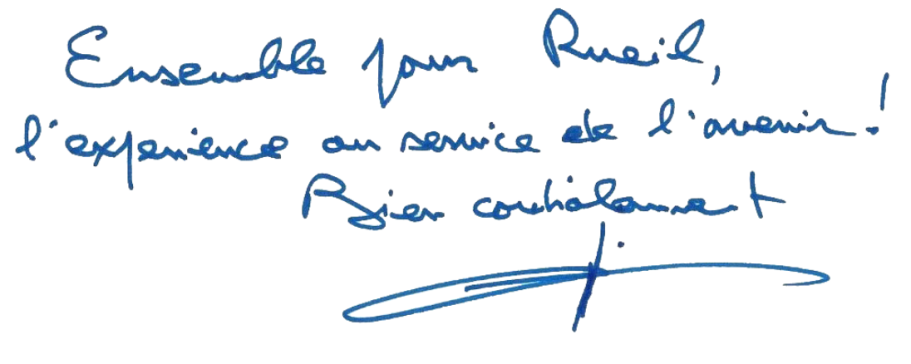 Ensemble pour Rueil,
l'expérience au service de l'avenir !
Bien cordialement